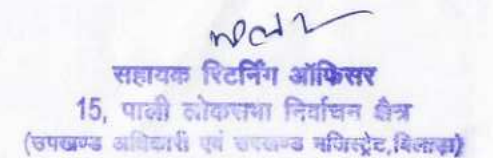 सहायक रिटर्निंग ऑफिसर
15, पाली लोकसभा निर्वाचन क्षेत्र
(उपखण्ड अधिकारी एवं उपखण्ड मजिस्ट्रेट,बिलाड़ा)